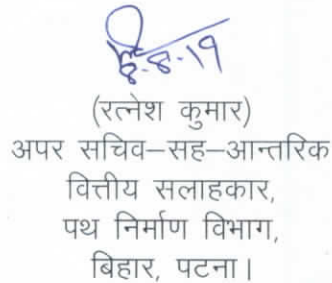 ८.८.१९
(रत्नेश कुमार)
अपर सचिव–सह–आन्तरिक
वित्तीय सलाहकार,
पथ निर्माण विभाग,
बिहार, पटना।